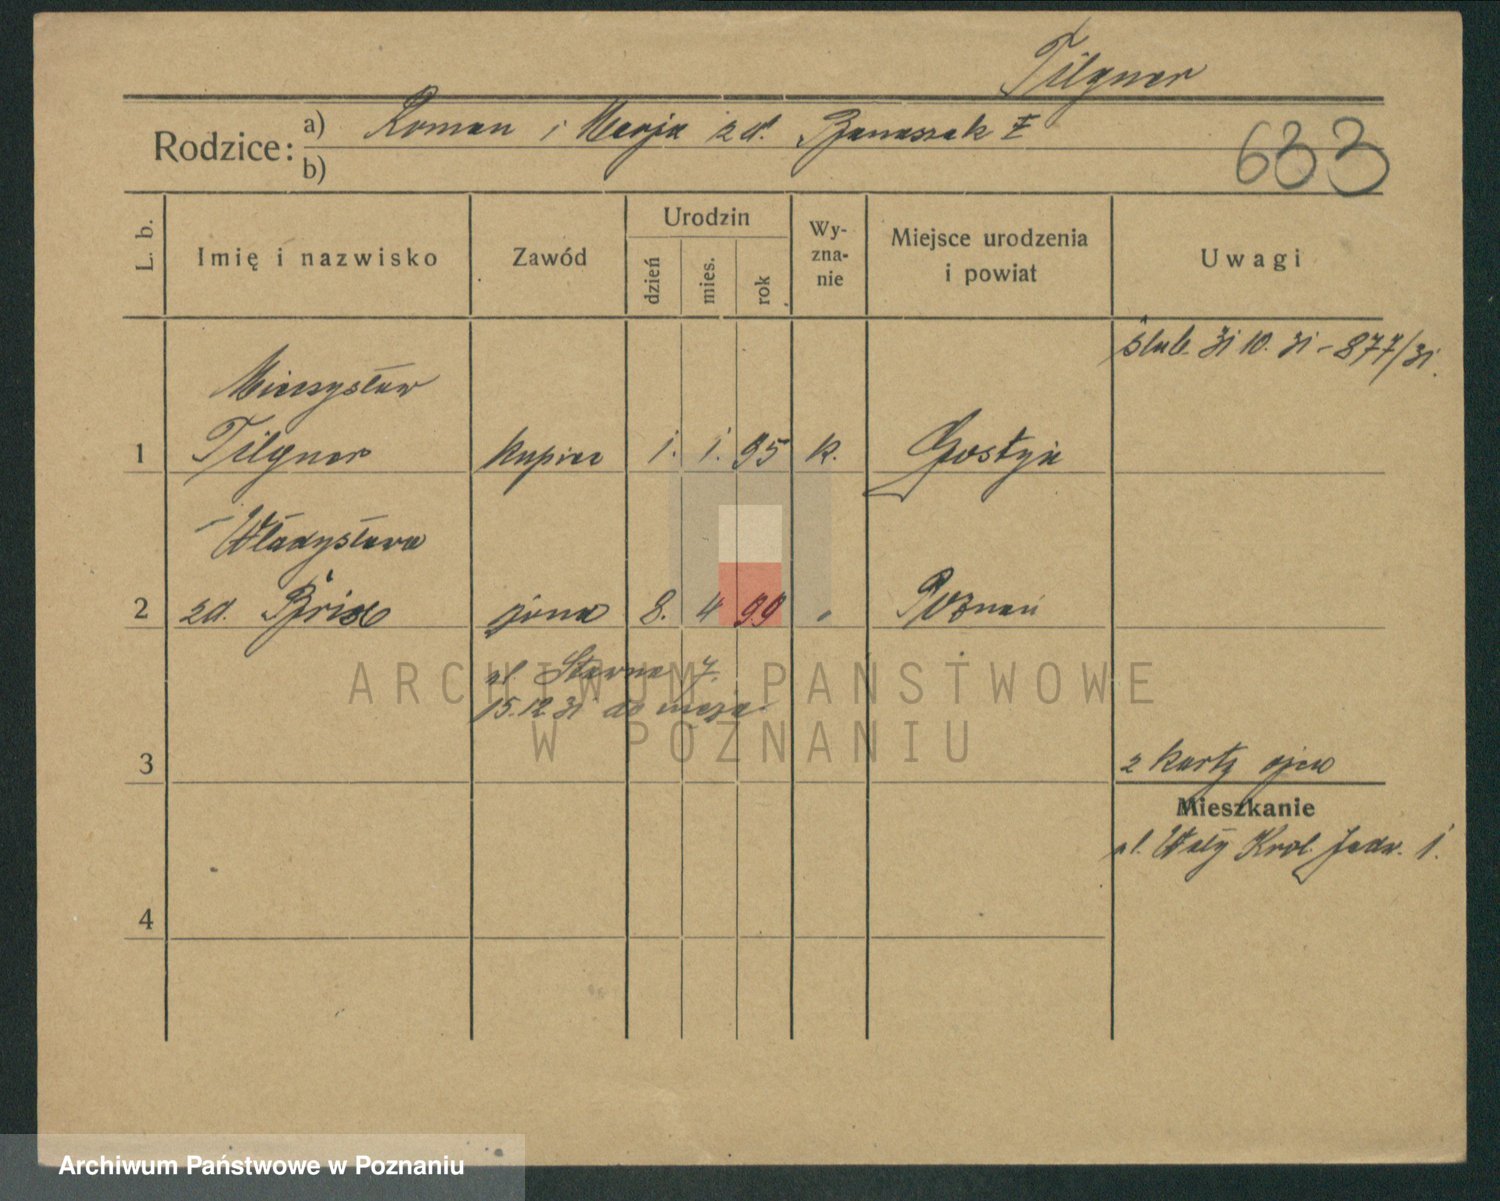 Tilgner
Rodzice: a) Roman i Marja zd. Banaszak
b)
633
L. b.
Imię i nazwisko
Zawód
Urodzin
dzień
mies.
rok
Wy-
zna-
nie
Miejsce urodzenia
i powiat
Uwagi
ślub 31 10. 31 - 877/31.
Mieczysław
1 Tilgner kupiec 1. 1. 95 k. Gostyń
Władysława
2 zd. Brix żona 8. 4 99 " Poznań
ul. Stawna 7.
15.12 31 do męża
3
z karty ojca
Mieszkanie
ul. Wały Król. Jadw. 1.
4
ARCHIWUM PAŃSTWOWE
W POZNANIU
Archiwum Państwowe w Poznaniu